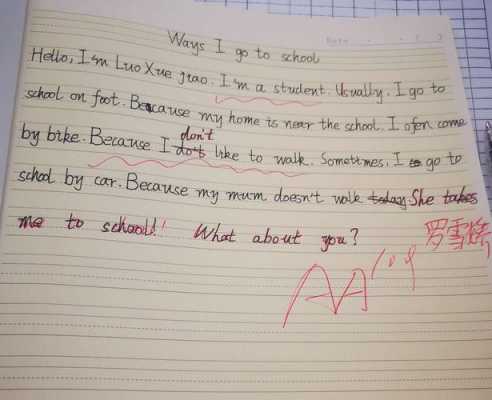 Ways I go to school
Hello, I'm Luo Xue jiao. I'm a student. Usually. I go to
school on foot. Because my home is near the school. I ofen come
by bike. Because I don't like to walk. Sometimes, I go to
school by car. Because my mum doesn't walk today. She takes
me to school! What about you?
罗雪
AA